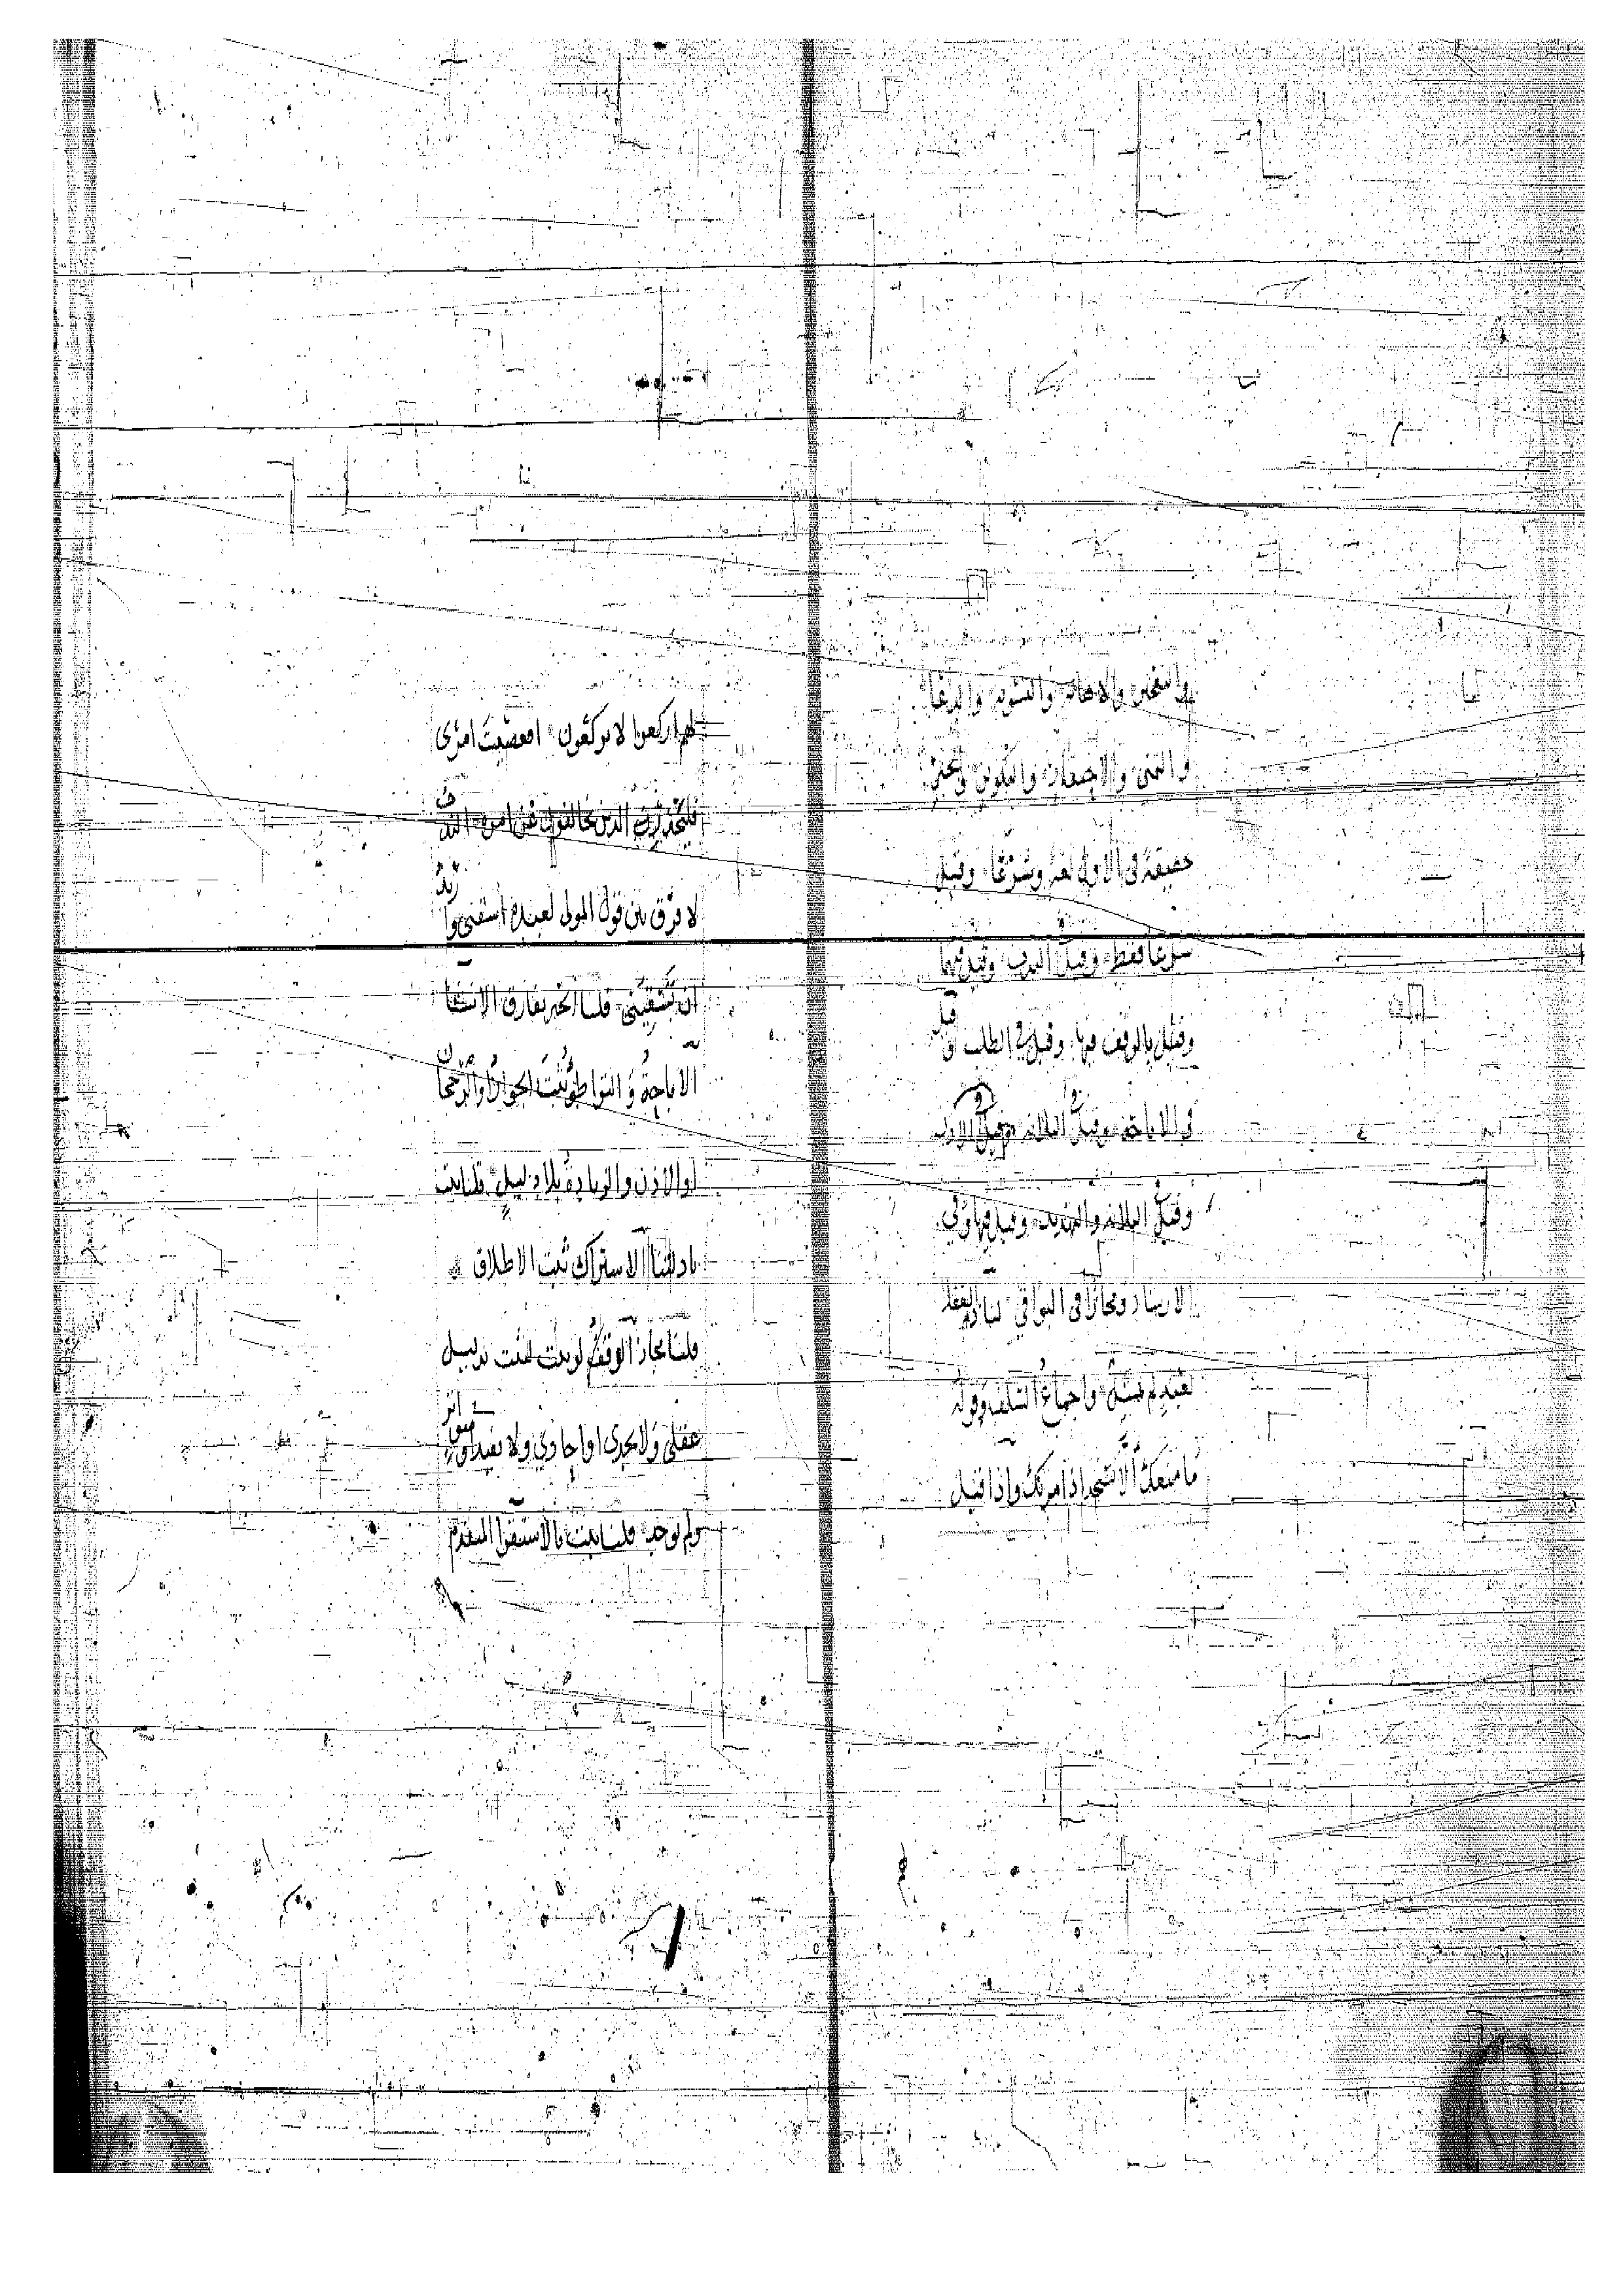 والتعجيز والاهانة والتسوية والدعا
والتمنى والاحتقار والتكوين والخبر
حقيقة فى الاول لغة وشرعا وقيل
شرعا فقط وقيل الندب وقيل فيهما
وقيل بالوقف فيها وقيل فى الطلب وقيل
فى الاباحة وقيل الثلاثة وقيل
وقيل الثلاثة والتهديد وقيل فيها وفى
الارشاد ومجاز فى البواقي لنا ذم العقلا
لعبد لم يمتثل واجماع السلف وقوله
ما منعك الا تسجد اذ امرتك واذا قيل
لهم اركعوا لا يركعون افعصيت امرى
فليحذر الذين يخالفون عن امره
لا فرق بين قول المولى لعبده اسقنى و
ان تسقينى قلنا الخبر يفارق الانشا
الاباحة والتواطؤ ثبت الجواز والرجحان
او الاذن والزيادة بلا دليل قلنا ثبت
بادلتنا الاشتراك ثبت الاطلاق
قلنا مجاز الوقف لو ثبت لثبت بدليل
عقلى ولا يجدى او احادي ولا يفيد او متواتر
ولم يوجد قلنا ثبت بالاستقرا المتقدم